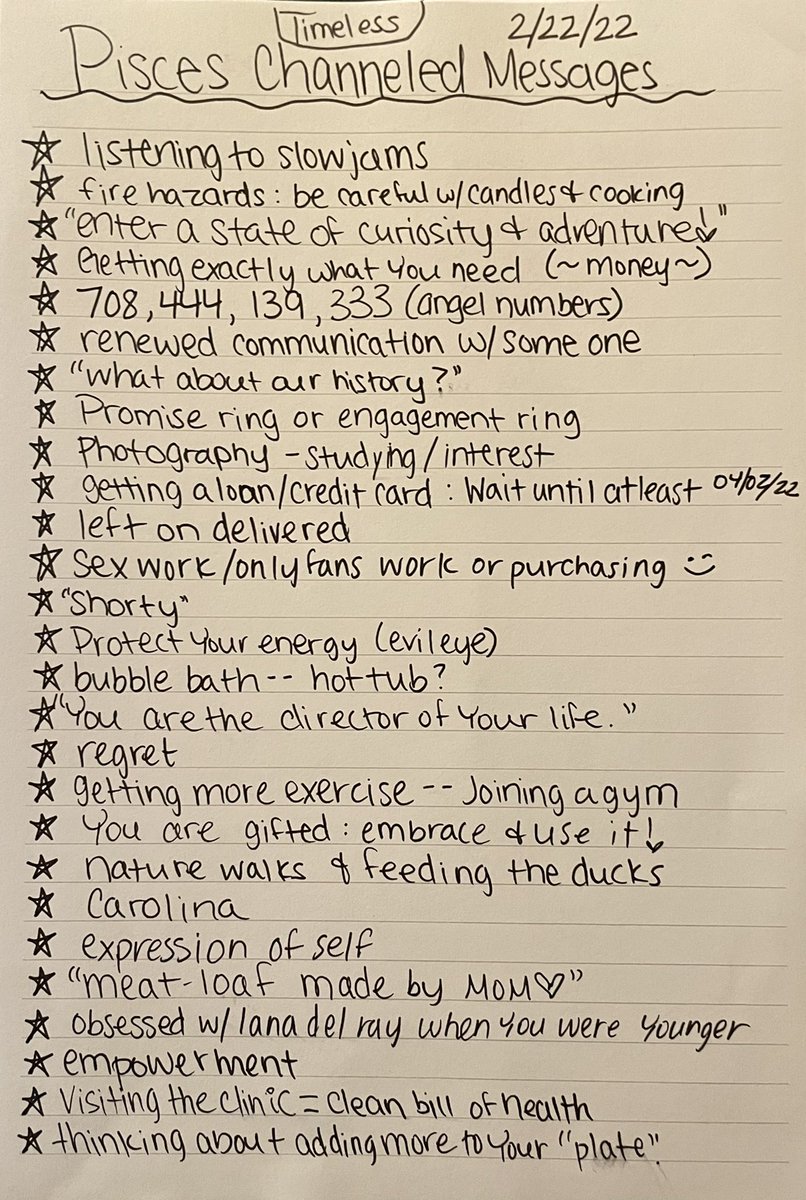 Timeless 2/22/22
Pisces Channeled Messages
☆ listening to slowjams
☆ fire hazards : be careful w/candles & cooking
☆ "enter a state of curiosity & adventure!"
☆ Getting exactly what you need (~money~)
☆ 708, 444, 139, 333 (angel numbers)
☆ renewed communication w/ some one
☆ "what about our history?"
☆ Promise ring or engagement ring
☆ Photography - studying/interest
☆ getting a loan/credit card : Wait until atleast 04/02/22
☆ left on delivered
☆ sex work/onlyfans work or purchasing :)
☆ "Shorty"
☆ Protect your energy (evil eye)
☆ bubble bath -- hot tub?
☆ "You are the director of your life."
☆ regret
☆ getting more exercise -- Joining a gym
☆ You are gifted : embrace & use it!
☆ nature walks & feeding the ducks
☆ Carolina
☆ expression of self
☆ "meat-loaf made by MOM♡"
☆ obsessed w/ lana del ray when you were younger
☆ empowerment
☆ Visiting the clinic = clean bill of health
☆ thinking about adding more to your "plate".